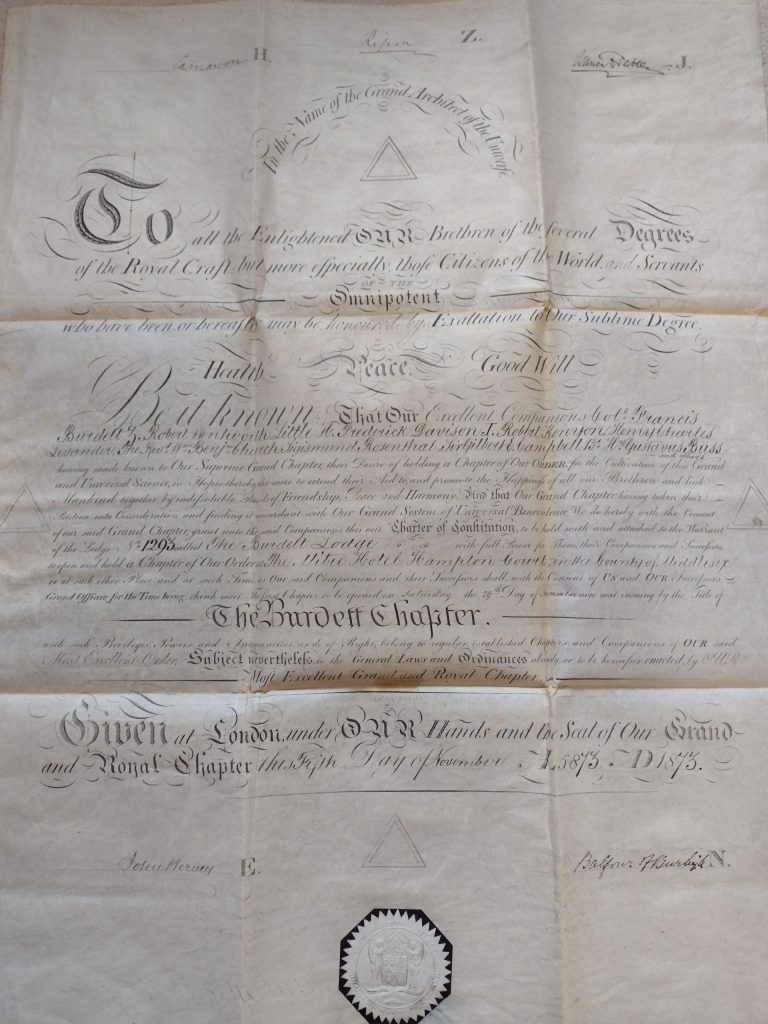 Carnarvon H.
Ripon Z.
J.
In the Name of the Grand Architect of the Universe
To all the Enlightened OUR Brethren of the several Degrees
of the Royal Craft, but more especially, those Citizens of the World, and Servants
OF THE
Omnipotent.
who have been, or hereafter may be, honoured by Exaltation to Our Sublime Degree,
Health. Peace. Good Will.
Be it known, That Our Excellent Companions Colˡ. Francis
Burdett Z. Robert Wentworth Little H. Frederick Davison J. Robert Kenyon, Henry Charles
Levander, The Revᵈ. Wᵐ. Benjⁿ. Church, Sigismund Rosenthal, Sir Gilbert E. Campbell Bᵗ. H. Gustavus Buss and others
having made known to Our Supreme Grand Chapter, their Desire of holding a Chapter of Our ORDER, for the Cultivation of this Grand
and Universal Science, in Hopes thereby the more to extend their Aid to, and promote the Happiness of all our Brethren and link
Mankind together by indissoluble Bonds of Friendship, Peace and Harmony. And that Our Grand Chapter having taken their
Petition into Consideration and finding it accordant with Our Grand System of Universal Benevolence, We do hereby with the Consent
of our said Grand Chapter, grant unto the said Companions this our Charter of Constitution, to be held with and attached to the Warrant
of the Lodge Nº. 1293 called The Burdett Lodge with full Power for Them, their Companions and Successors,
to open and hold a Chapter of Our Order at The Mitre Hotel Hampton Court, in the County of Middlesex
or at such other Place, and at such Time as Our said Companions and their Successors shall with the Consent of US and OUR Successors
Grand Officers, for the Time being, think meet. The first Chapter to be opened on Saturday the 29ᵗʰ Day of November now next ensuing by the Title of
The Burdett Chapter.
with such Privileges, Powers and Immunities, as do of Right, belong to regular, established Chapters and Companions, of OUR said
Most Excellent Order, Subject nevertheless to the General Laws and Ordinances already, or to be hereafter enacted, by OUR
Most Excellent Grand and Royal Chapter.
Given at London, under OUR Hands and the Seal of Our Grand
and Royal Chapter this Fifth Day of November AL 5873, AD 1873.
John Hervey E.
Balfour of Burleigh N.